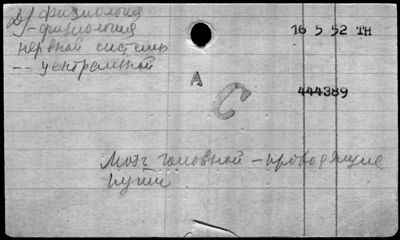 Д) физиология
- физиология
нервной системы
-- центральной
16 5 52 TH
A
C
444389
Мозг головной - проводящие
пути